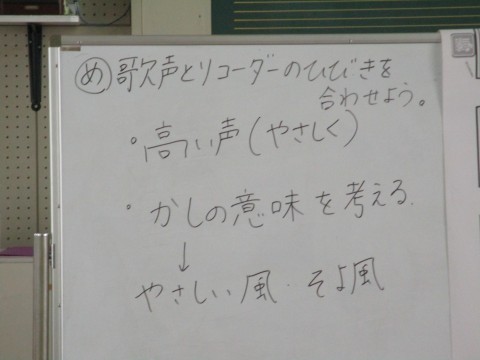 め 歌声とリコーダーのひびきを
合わせよう。
・高い声(やさしく)
・かしの意味を考える.
↓
やさしい風・そよ風